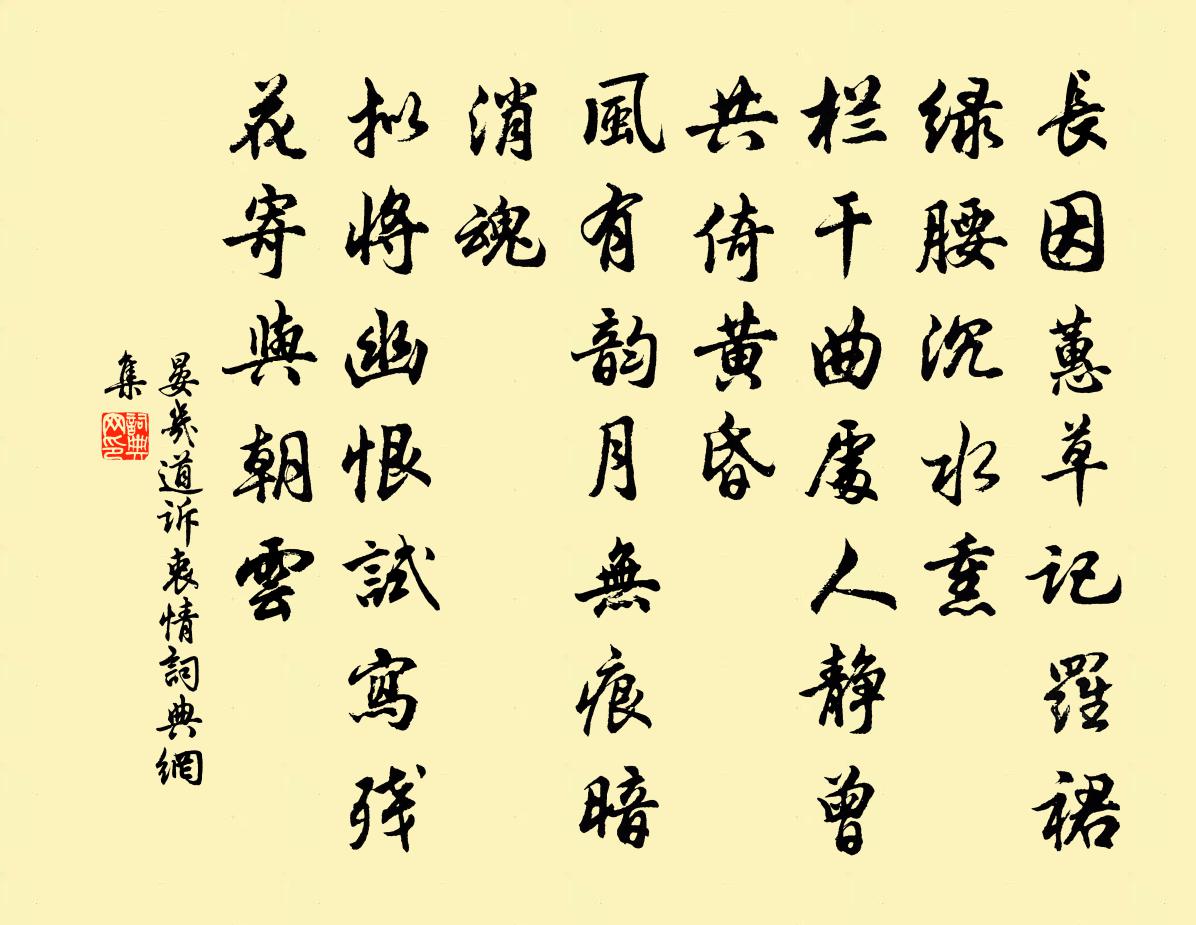 長因蕙草記羅裙
绿腰沉水熏
栏干曲處人静曾
共倚黄昏
風有韵月無痕暗
消魂
拟將幽恨試寫残
花寄與朝雲
晏幾道诉衷情詞典網
集
詞典
网印